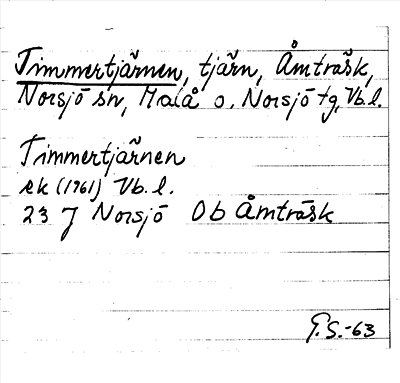 Timmertjärnen, tjärn, Åmträsk,
Norsjö sn, Malå o. Norsjö tg, Vb.l.
Timmertjärnen
ek (1961) Vb.l.
23 J Norsjö Ob Åmträsk
G.S.-63